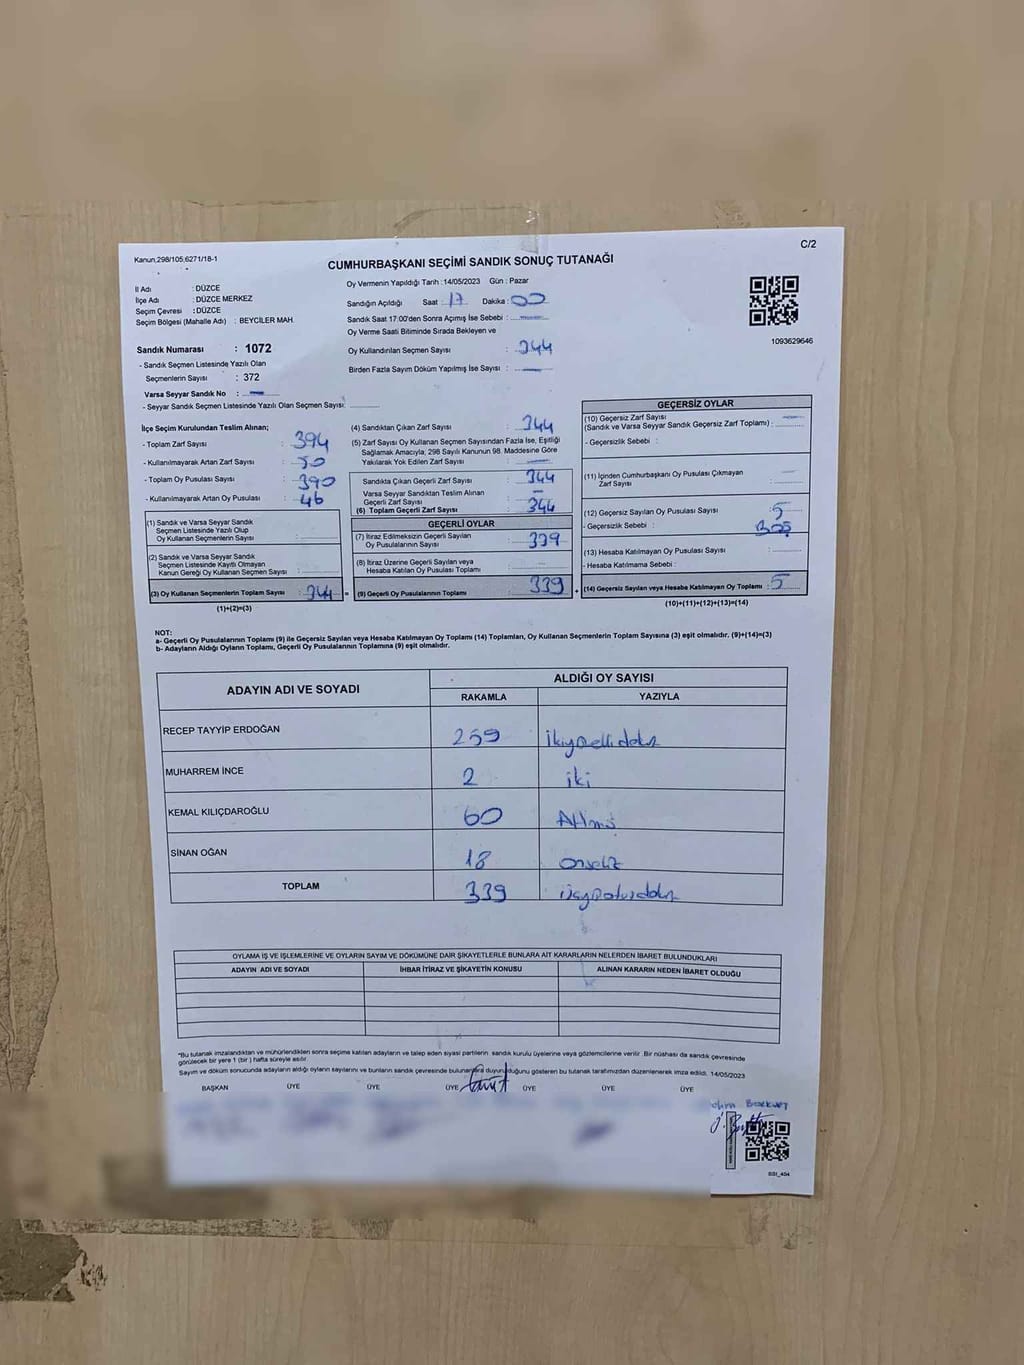 C/2
Kanun,298/105,6271/18-1
CUMHURBAŞKANI SEÇİMİ SANDIK SONUÇ TUTANAĞI
İl Adı : DÜZCE
İlçe Adı : DÜZCE MERKEZ
Seçim Çevresi : DÜZCE
Seçim Bölgesi (Mahalle Adı) : BEYCİLER MAH.
Sandık Numarası : 1072
- Sandık Seçmen Listesinde Yazılı Olan
Seçmenlerin Sayısı : 372
Varsa Seyyar Sandık No :
- Seyyar Sandık Seçmen Listesinde Yazılı Olan Seçmen Sayısı:
Oy Vermenin Yapıldığı Tarih :14/05/2023 Gün : Pazar
Sandığın Açıldığı Saat : 17 Dakika : 00
Sandık Saat 17:00'den Sonra Açımış İse Sebebi :
Oy Verme Saati Bitiminde Sırada Bekleyen ve
Oy Kullandırılan Seçmen Sayısı : 344
Birden Fazla Sayım Döküm Yapılmış İse Sayısı :
1093629646
İlçe Seçim Kurulundan Teslim Alınan;
- Toplam Zarf Sayısı : 394
- Kullanılmayarak Artan Zarf Sayısı : 50
- Toplam Oy Pusulası Sayısı : 390
- Kullanılmayarak Artan Oy Pusulası : 46
(1) Sandık ve Varsa Seyyar Sandık
Seçmen Listesinde Yazılı Olup
Oy Kullanan Seçmenlerin Sayısı :
(2) Sandık ve Varsa Seyyar Sandık
Seçmen Listesinde Kayıtlı Olmayan
Kanun Gereği Oy Kullanan Seçmen Sayısı :
(3) Oy Kullanan Seçmenlerin Toplam Sayısı : 344 =
(1)+(2)=(3)
(4) Sandıktan Çıkan Zarf Sayısı : 344
(5) Zarf Sayısı Oy Kullanan Seçmen Sayısından Fazla İse, Eşitliği
Sağlamak Amacıyla, 298 Sayılı Kanunun 98. Maddesine Göre
Yakılarak Yok Edilen Zarf Sayısı :
Sandıkta Çıkan Geçerli Zarf Sayısı : 344
Varsa Seyyar Sandıktan Teslim Alınan
Geçerli Zarf Sayısı : –
(6) Toplam Geçerli Zarf Sayısı : 344
GEÇERLİ OYLAR
(7) İtiraz Edilmeksizin Geçerli Sayılan
Oy Pusulalarının Sayısı : 339
(8) İtiraz Üzerine Geçerli Sayılan veya
Hesaba Katılan Oy Pusulası Toplamı :
(9) Geçerli Oy Pusulalarının Toplamı : 339 +
GEÇERSİZ OYLAR
(10) Geçersiz Zarf Sayısı
(Sandık ve Varsa Seyyar Sandık Geçersiz Zarf Toplamı) :
- Geçersizlik Sebebi :
(11) İçinden Cumhurbaşkanı Oy Pusulası Çıkmayan
Zarf Sayısı :
(12) Geçersiz Sayılan Oy Pusulası Sayısı : 5
- Geçersizlik Sebebi : BOŞ
(13) Hesaba Katılmayan Oy Pusulası Sayısı :
- Hesaba Katılmama Sebebi :
(14) Geçersiz Sayılan veya Hesaba Katılmayan Oy Toplamı : 5
(10)+(11)+(12)+(13)=(14)
NOT:
a- Geçerli Oy Pusulalarının Toplamı (9) ile Geçersiz Sayılan veya Hesaba Katılmayan Oy Toplamı (14) Toplamları, Oy Kullanan Seçmenlerin Toplam Sayısına (3) eşit olmalıdır. (9)+(14)=(3)
b- Adayların Aldığı Oyların Toplamı, Geçerli Oy Pusulalarının Toplamına (9) eşit olmalıdır.
ADAYIN ADI VE SOYADI ALDIĞI OY SAYISI
RAKAMLA YAZIYLA
RECEP TAYYİP ERDOĞAN 259 ikiyüzellidokuz
MUHARREM İNCE 2 iki
KEMAL KILIÇDAROĞLU 60 Altmış
SİNAN OĞAN 18 onsekiz
TOPLAM 339 üçyüzotuzdokuz
OYLAMA İŞ VE İŞLEMLERİNE VE OYLARIN SAYIM VE DÖKÜMÜNE DAİR ŞİKAYETLERLE BUNLARA AİT KARARLARIN NELERDEN İBARET BULUNDUKLARI
ADAYIN ADI VE SOYADI İHBAR İTİRAZ VE ŞİKAYETİN KONUSU ALINAN KARARIN NEDEN İBARET OLDUĞU
*Bu tutanak imzalandıktan ve mühürlendikten sonra seçime katılan adayların ve talep eden siyasi partilerin sandık kurulu üyelerine veya gözlemcilerine verilir. Bir nüshası da sandık çevresinde
görülecek bir yere 1 (bir ) hafta süreyle asılır.
Sayım ve döküm sonucunda adayların aldığı oyların sayılarını ve bunların sandık çevresinde bulunanlara duyurulduğunu gösteren bu tutanak tarafımızdan düzenlenerek imza edildi. 14/05/2023
BAŞKAN ÜYE ÜYE ÜYE ÜYE ÜYE ÜYE